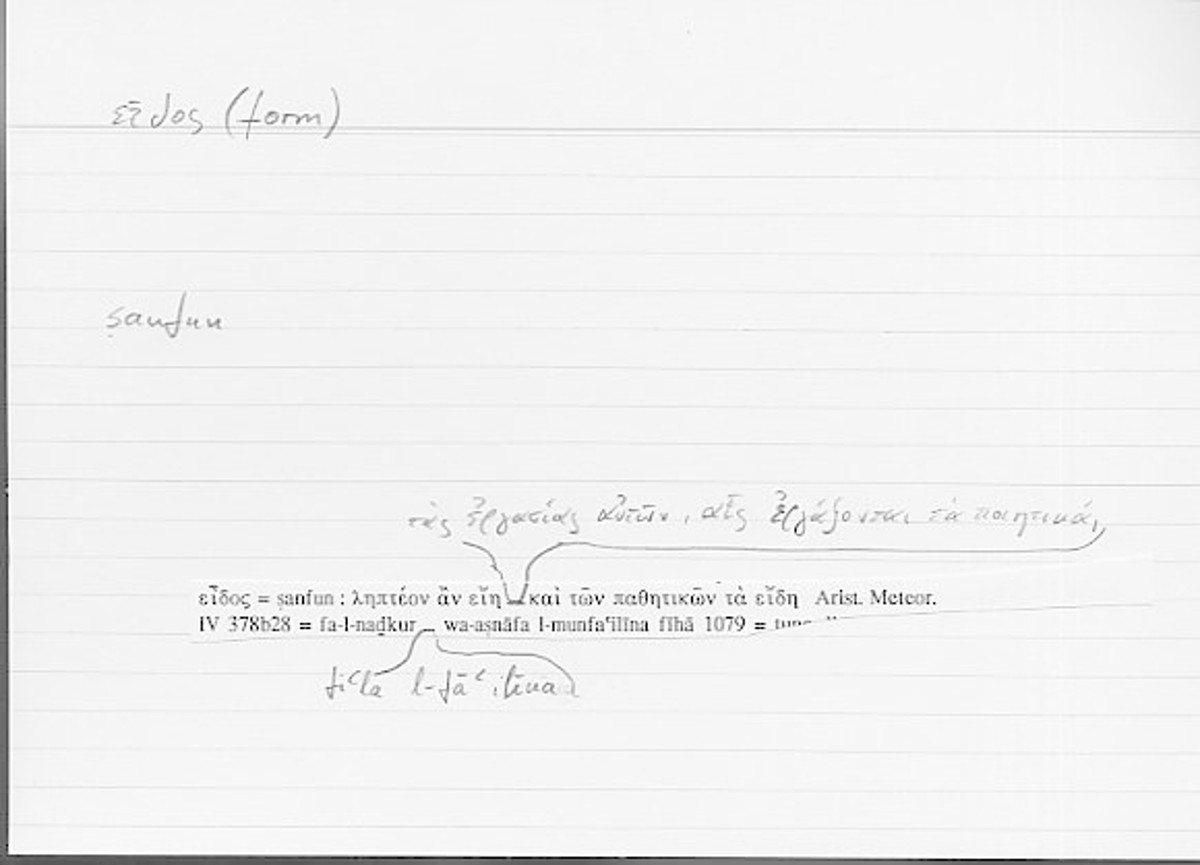 εἶδος (form)
ṣanfun
τὰς ἐργασίας αὐτῶν, αἷς ἐργάζονται τὰ ποιητικά,
εἶδος = ṣanfun : ληπτέον ἂν εἴη καὶ τῶν παθητικῶν τὰ εἴδη Arist. Meteor.
IV 378b28 = fa-l-naḏkur _ wa-aṣnāfa l-munfaʿilīna fīhā 1079 =
fiʿla l-fāʿilīna